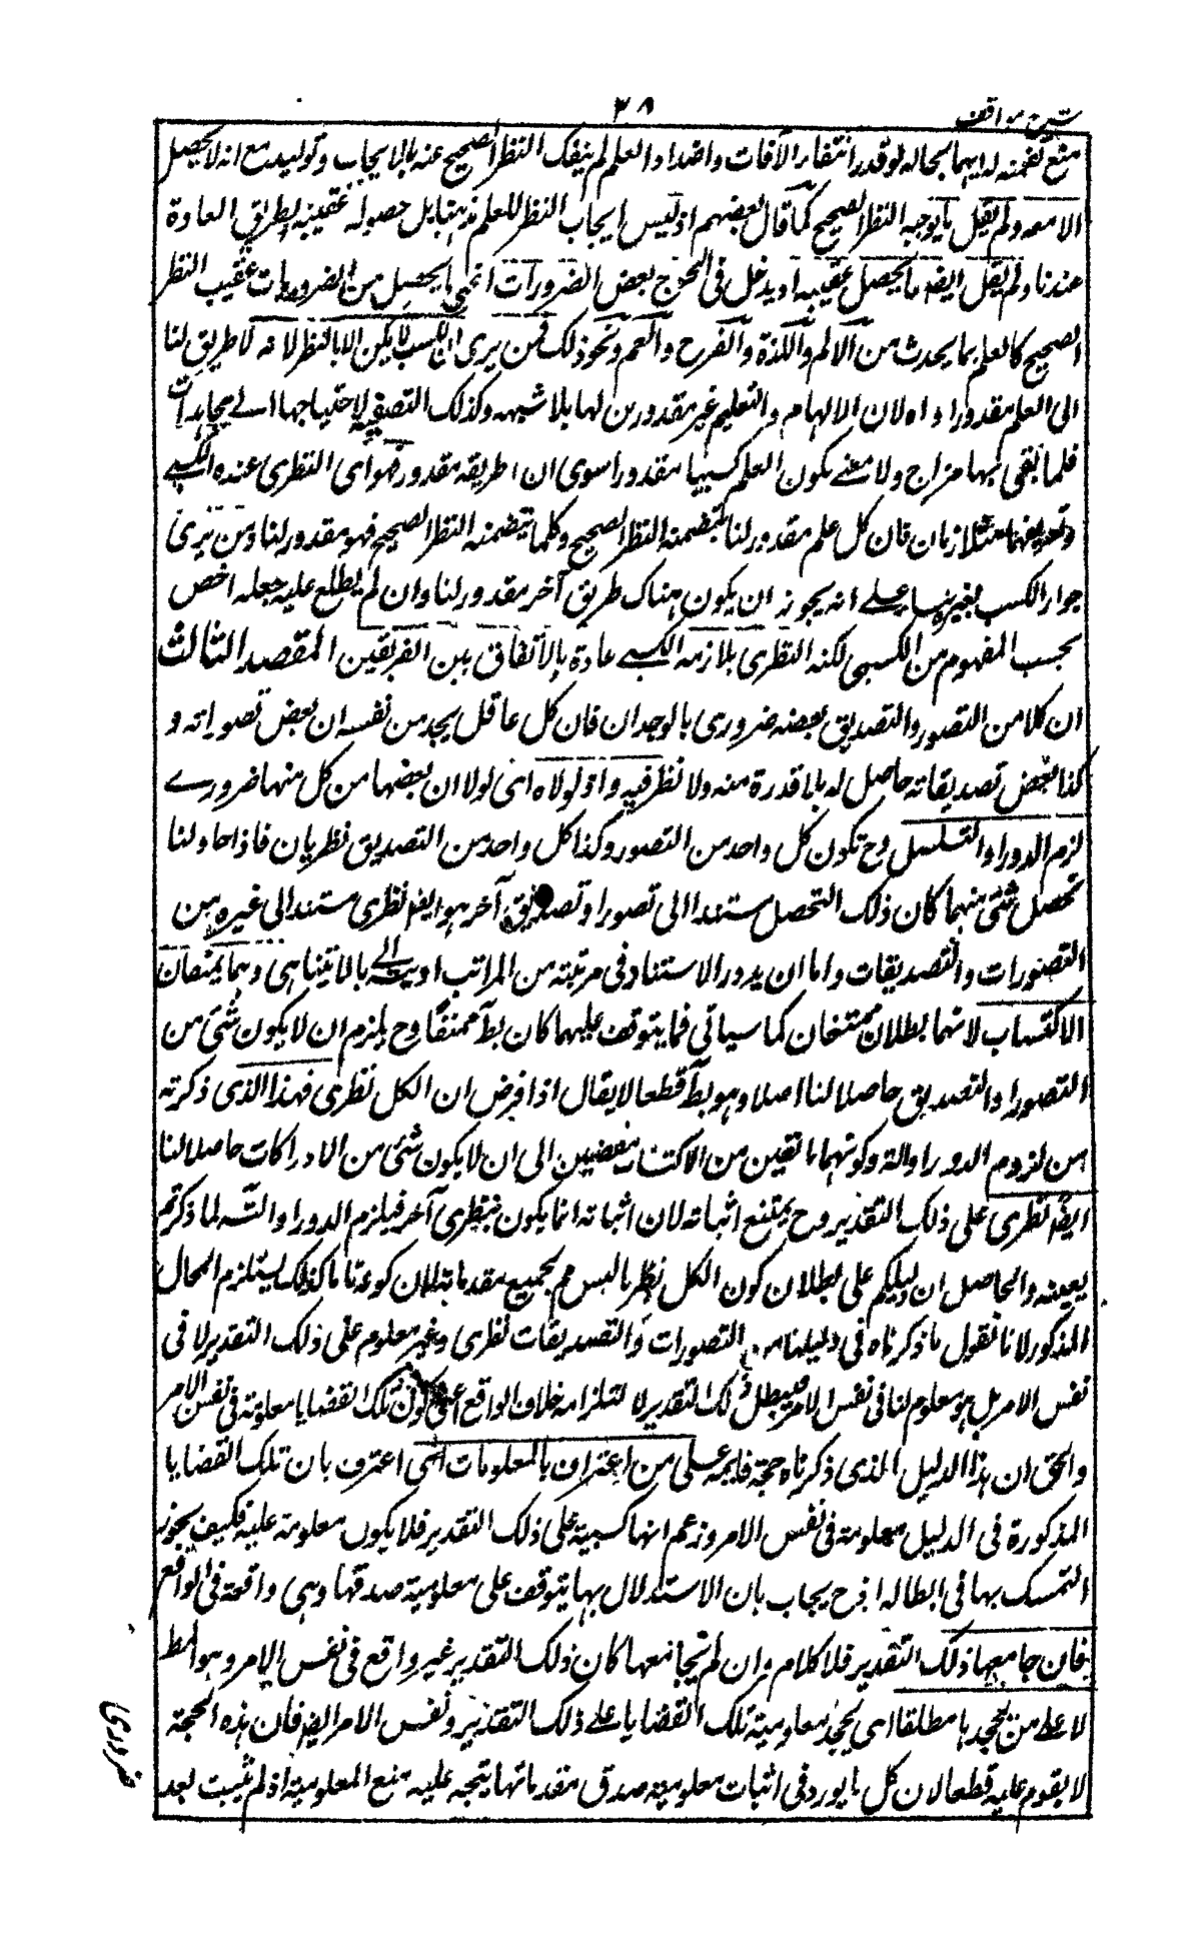 شرح مواقف
٣٨
منع تضمنه له ايهما بحاله لو قدر انتفاء الآفات واضداد العلم لم ينفك النظر الصحيح عنه بلا ايجاب وتوليد مع انه لا يحصل
الا معه ولم يقل ما يوجبه النظر الصحيح كما قال بعضهم اذ ليس ايجاب النظر للعلم مذهبنا بل حصوله عقيبه بطريق العادة
عندنا ولم يقل ايضا ما يحصل عقيبه اذ يدخل فى الحد ج بعض الضرورات اعنى ما يحصل من الضروريات عقيب النظر
الصحيح كالعلم بما يحدث من الالم واللذة والفرح والغم ونحو ذلك فمن يرى ان الكسب لا يمكن الا بالنظر لانه لا طريق لنا
الى العلم مقدورا سواه لان الالهام والتعليم غير مقدورين لنا بلا شبهه وكذلك التصفية لاحتياجها الے مجاهدات
قلما يفى بها مزاج ولا معنے لكون العلم كسبيا مقدورا سوى ان طريقه مقدور فهو اى النظرى عنده الكسبے
وتعريفهما متلازمان فان كل علم مقدور لنا يتضمنه النظر الصحيح وكلما يتضمنه النظر الصحيح فهو مقدور لنا ومن يرى
جواز الكسب بغيره بناء علے انه يجوز ان يكون هناك طريق آخر مقدور لنا وان لم يطلع عليه جعله اخص
بحسب المفهوم من الكسبى لكنه النظرى يلازمه الكسبے عادة بالاتفاق بين الفريقين المقصد الثالث
ان كلا من التصور والتصديق بعضه ضرورى بالوجدان فان كل عاقل يجد من نفسه ان بعض تصوراته و
كذا بعض تصديقاته حاصل له بلا قدرة منه ولا نظر فيه واذ لولاه اى لولا ان بعضها من كل منهما ضرورے
لزم الدور او التسلسل وح تكون كل واحد من التصور وكذا كل واحد من التصديق نظريان فاذا حاولنا
تحصل شئ منهما كان ذلك التحصل مستندا الى تصور او تصديق آخر هو ايضا نظرى مستند الى غيره من
التصورات والتصديقات واما ان يدور الاستناد فى مرتبة من المراتب او يتسلسل الے ما لا يتناهى وهما يمنعان
الاكتساب لانهما بطلان ممتنعان كما سياتى فما يتوقف عليهما كان بط ممتنعا وح يلزم ان لا يكون شئ من
التصور او التصديق حاصلا لنا اصلا وهو بط قطعا لا يقال اذا فرض ان الكل نظرى فهذا الذى ذكرته
من لزوم الدور او التسـ وكونهما مانعين من الاكتساب مفضيين الى ان لا يكون شئ من الادراكات حاصلا لنا
ايضا نظرى على ذلك التقدير وح يمتنع اثباته لان اثباته انما يكون بنظرى آخر فيلزم الدور او التسـ لما ذكرتم
بعينه والحاصل ان دليلكم على بطلان كون الكل نظريا ليس مم بجميع مقدماته لان كونه تاما كذلك يستلزم المحال
المذكور لانا نقول ما ذكرناه فى دليلنا من التصورات والتصديقات نظرى وغير معلوم على ذلك التقدير لا فى
نفس الامر بل هو معلوم لنا فى نفس الامر فيبطل ذلك التقدير لاستلزامه خلاف الواقع اعنى كون تلك القضايا معلومة فى نفس الامر
والحق ان هذا الدليل الذى ذكرناه حجة قائمة علے من اعترف بالمعلومات اى اعترف بان تلك القضايا
المذكورة فى الدليل معلومة فى نفس الامر وزعم انها كسبية على ذلك التقدير فلا يكون معلومة عليه فكيف يجوز
التمسك بها فى ابطاله اذ ح يجاب بان الاستدلال بها يتوقف على معلومية صدقها وهى واقعة فى الواقع
فان جامعها ذلك التقدير فلا كلام وان لم يجامعها كان ذلك التقدير غير واقع فى نفس الامر وهو المط
لا علے من يجحدها مطلقا اى يجحد معلومية تلك القضايا علے ذلك التقدير ونفس الامر ايضا فان هذه الحجة
لا يقوم عليه قطعا لان كل ما يورد فى اثبات معلومية صدق مقدماتها يتجه عليه منع المعلومية اذ لم يثبت بعد
ضرورى